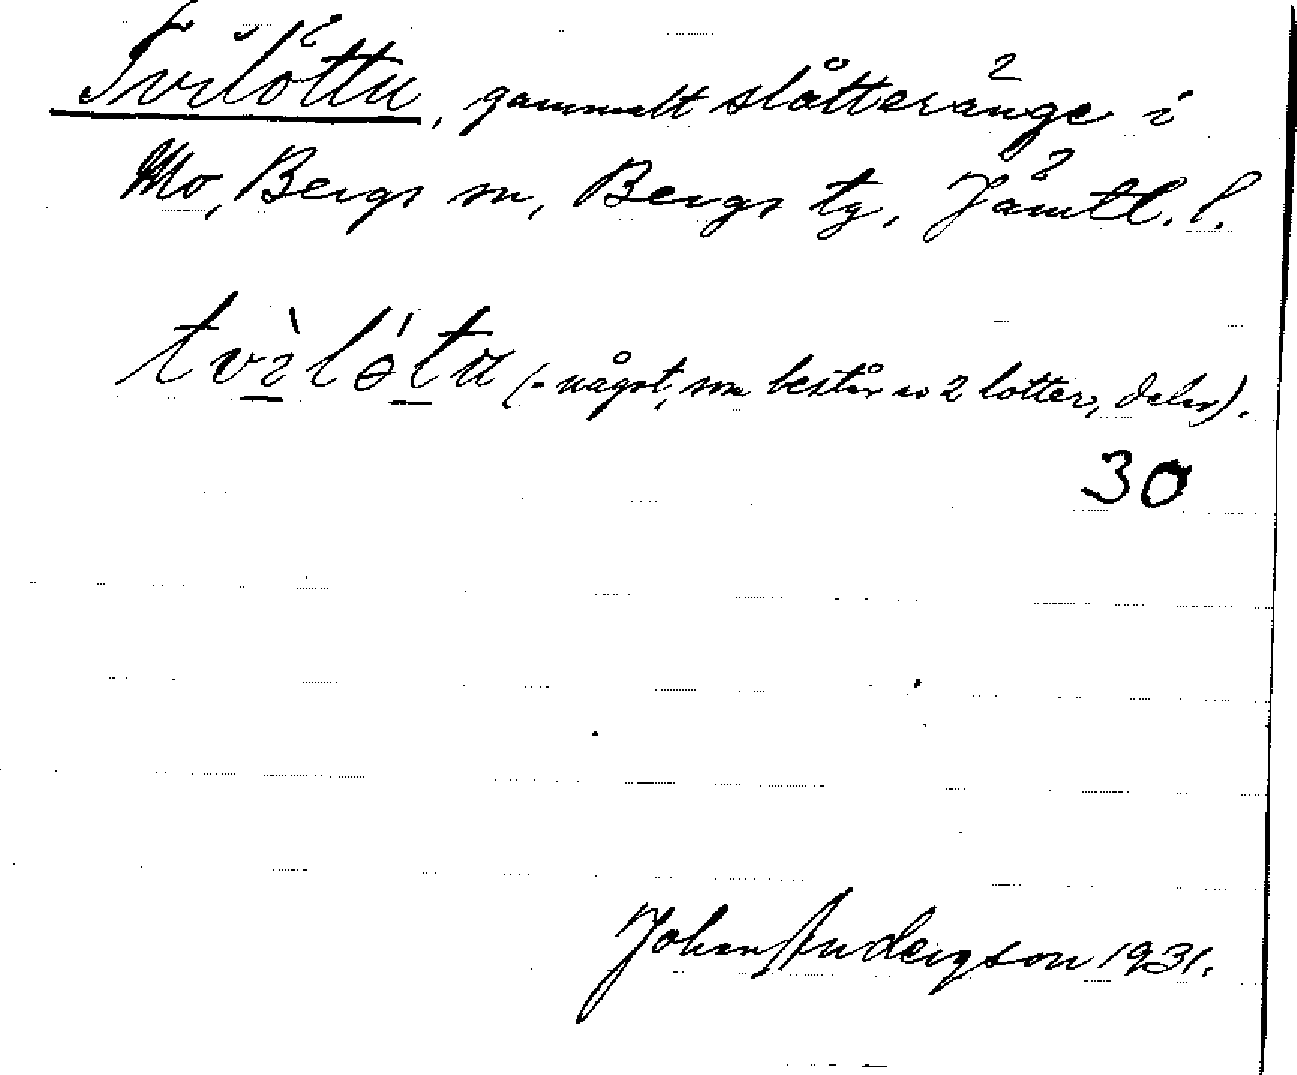 Tvilöttu, gammalt slåtteränge i
Mo, Bergs sn, Bergs tg, Jämtl. l.
tvìlǿtu (= något, som består av 2 lotter, delar).
30
Johan Anderzson 1931.